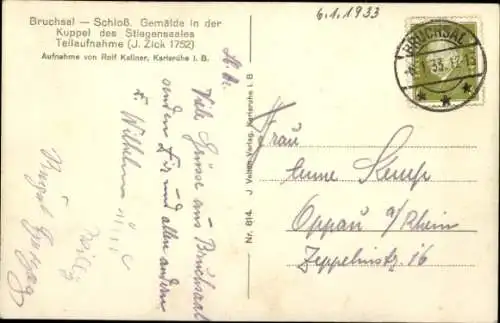 Bruchsal — Schloß. Gemälde in der
Kuppel des Stiegensaales
Teilaufnahme (J. Zick 1752)
Aufnahme von Rolf Kellner, Karlsruhe i. B.
6.1.1933
BRUCHSAL
33.17-18
Viele Grüsse aus Bruchsal
senden Dir und allen andern
Wilhelm
Nr. 814. J. Velten Verlag, Karlsruhe i. B
Frau
Anne Kempf
Oppau a/Rhein
Zeppelinstr. 16